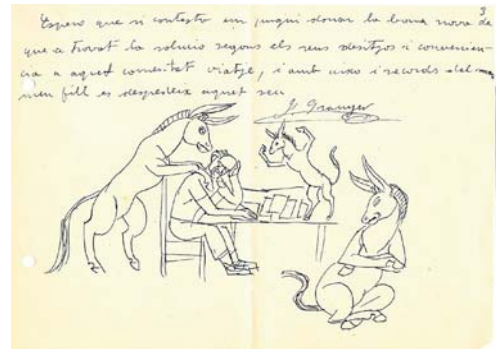 3
Espero que si contesto em pugui donar la bona nova de
que a trovat la solucio segons els seus desitjos i convenien-
cia a aquet comentat viatje, i amb aixo i records del
meu fill es despedeix aquet seu
J. Granyer